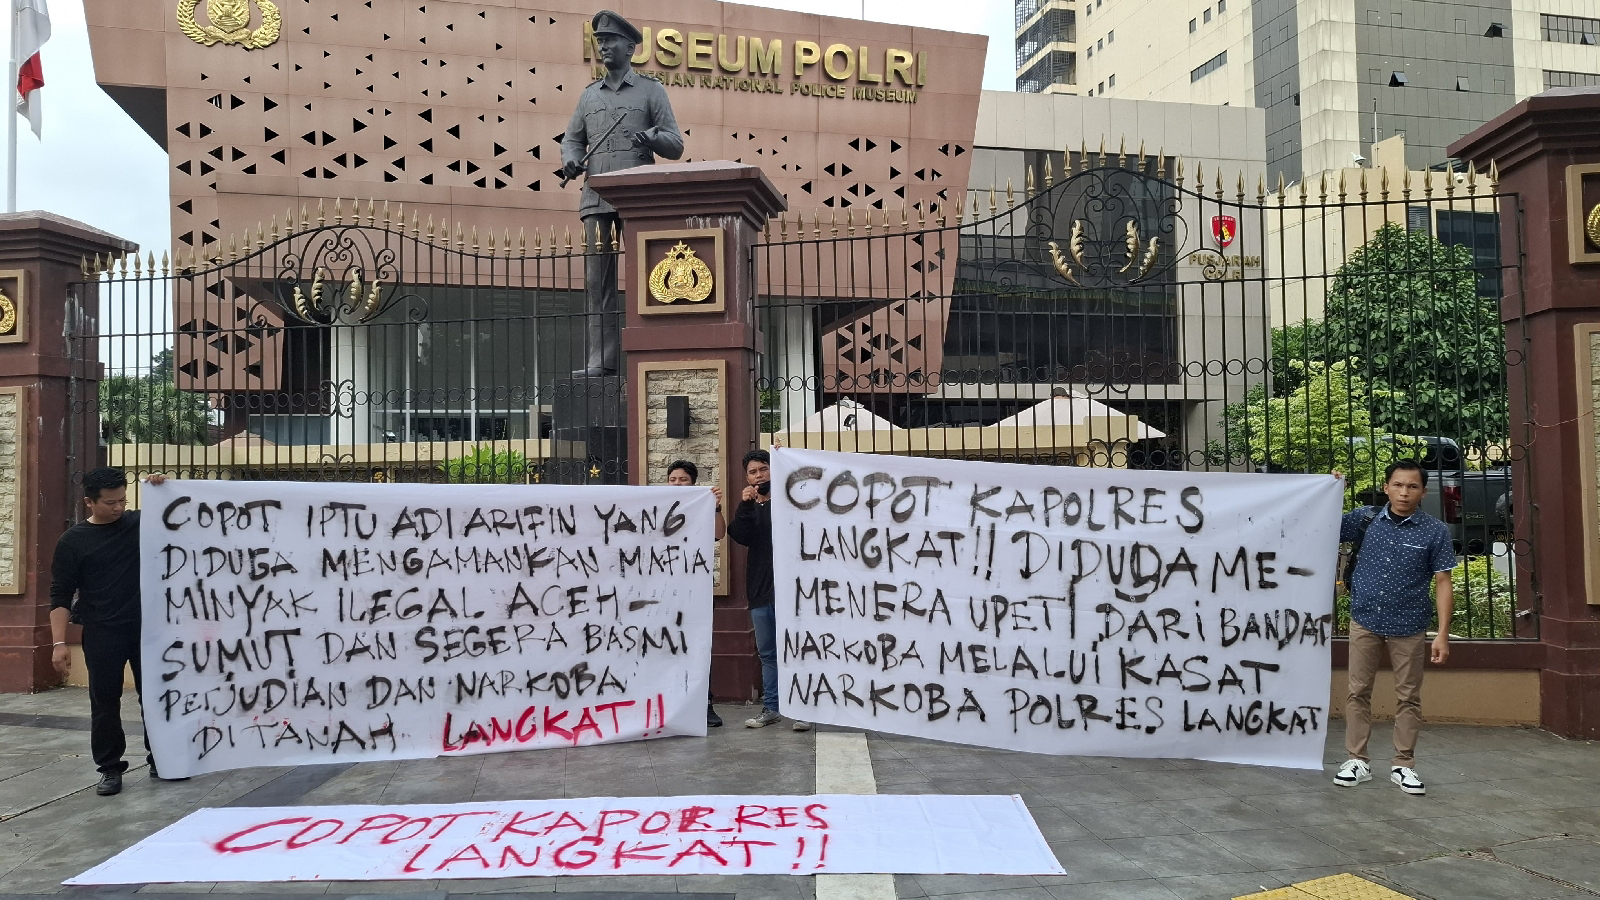 MUSEUM POLRI
INDONESIAN NATIONAL POLICE MUSEUM
PUSJARAH
POLRI
COPOT IPTU ADI ARIFIN YANG
DIDUGA MENGAMANKAN MAFIA
MINYAK ILEGAL ACEH-
SUMUT DAN SEGERA BASMI
PERJUDIAN DAN NARKOBA
DITANAH LANGKAT!!
COPOT KAPOLRES
LANGKAT!! DIDUDA ME-
MENERA UPETI DARI BANDAR
NARKOBA MELALUI KASAT
NARKOBA POLRES LANGKAT
COPOT KAPOLRES
LANGKAT!!